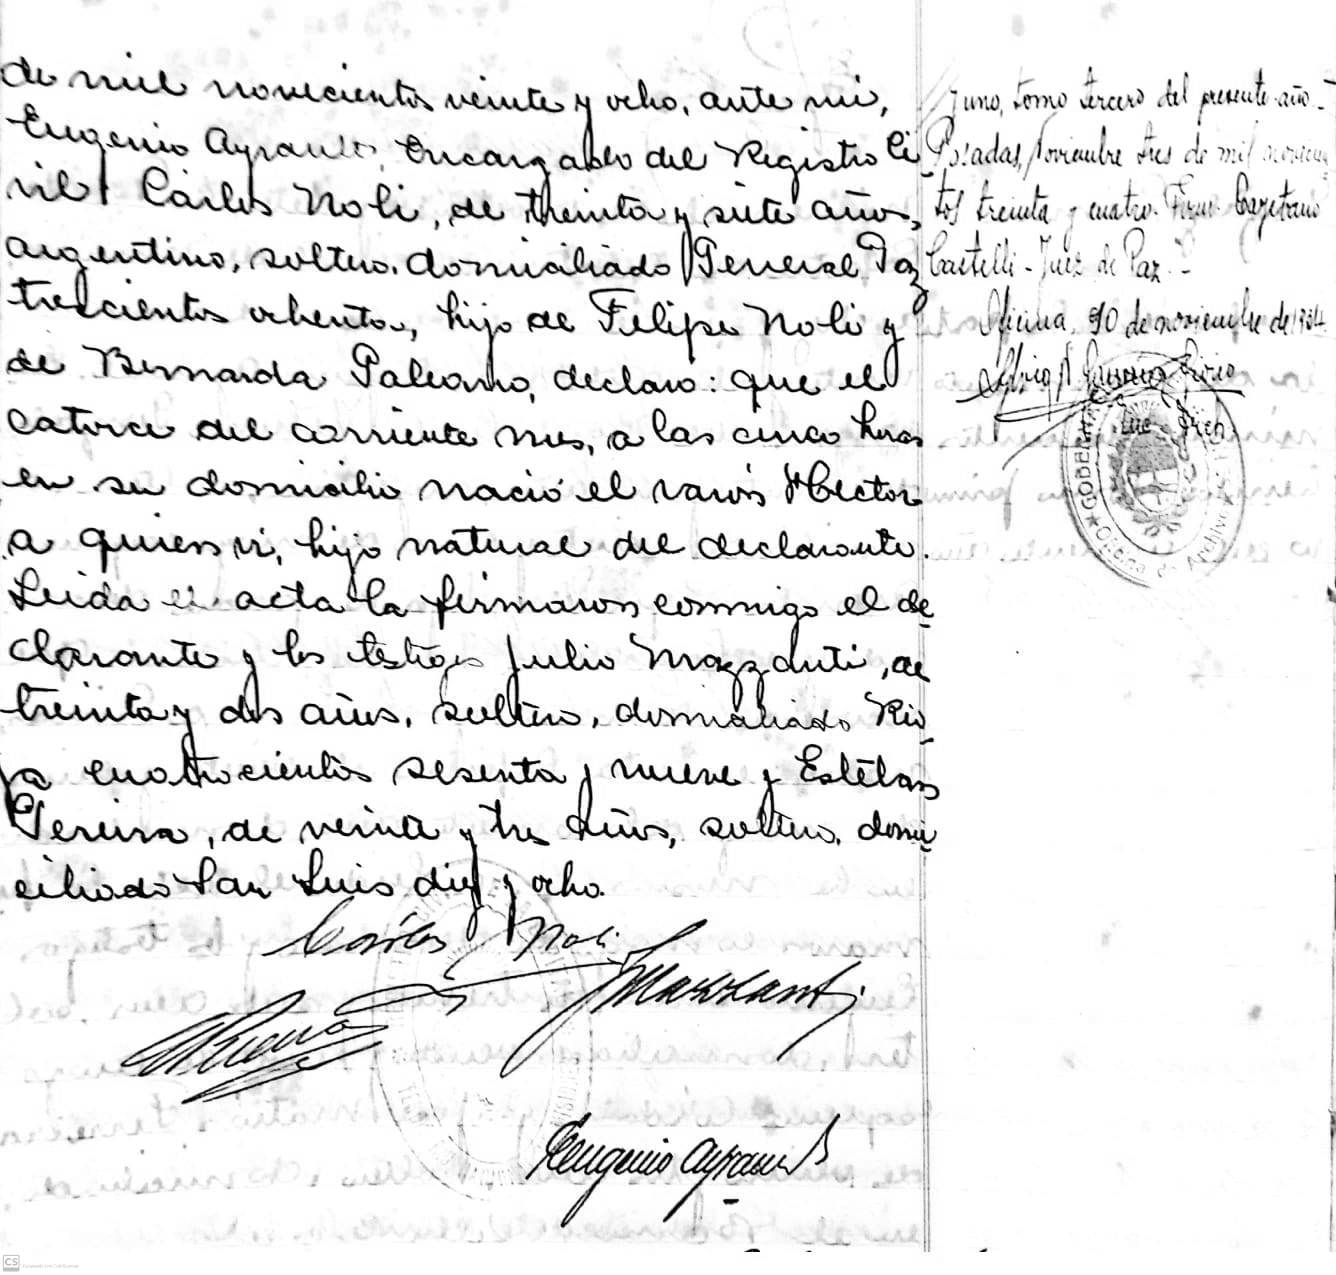 de mil novecientos veinte y ocho, ante mi,
Eugenio Ayrault, Encargado del Registro Ci
vil Cárlos Noli, de treinta y siete años,
argentino, soltero, domiciliado General Paz
trescientos ochenta, hijo de Felipe Noli y
de Bernarda Palermo, declaro: que el
catorce del corriente mes, a las cinco horas
en su domicilio nació el varón Hector
a quien vi, hijo natural del declarante.
Leida el acta la firmaron conmigo el de
clarante y los testigos Julio Mazzanti, de
treinta y dos años, soltero, domiciliado Rio
ja cuatrocientos sesenta y nueve y Estéban
Pereira, de veinte y tres años, soltero, domi
ciliado San Luis diez y ocho.
Cárlos Noli
JMazzanti
Eugenio Ayrault
y uno, tomo tercero del presente año.-
Posadas, Noviembre tres de mil novecien
tos treinta y cuatro. Firm. Cayetano
Castelli - Juez de Paz.-
Oficina, 20 de noviembre de 1934
Jefe
GOBER
Oficina de Archivo
CS